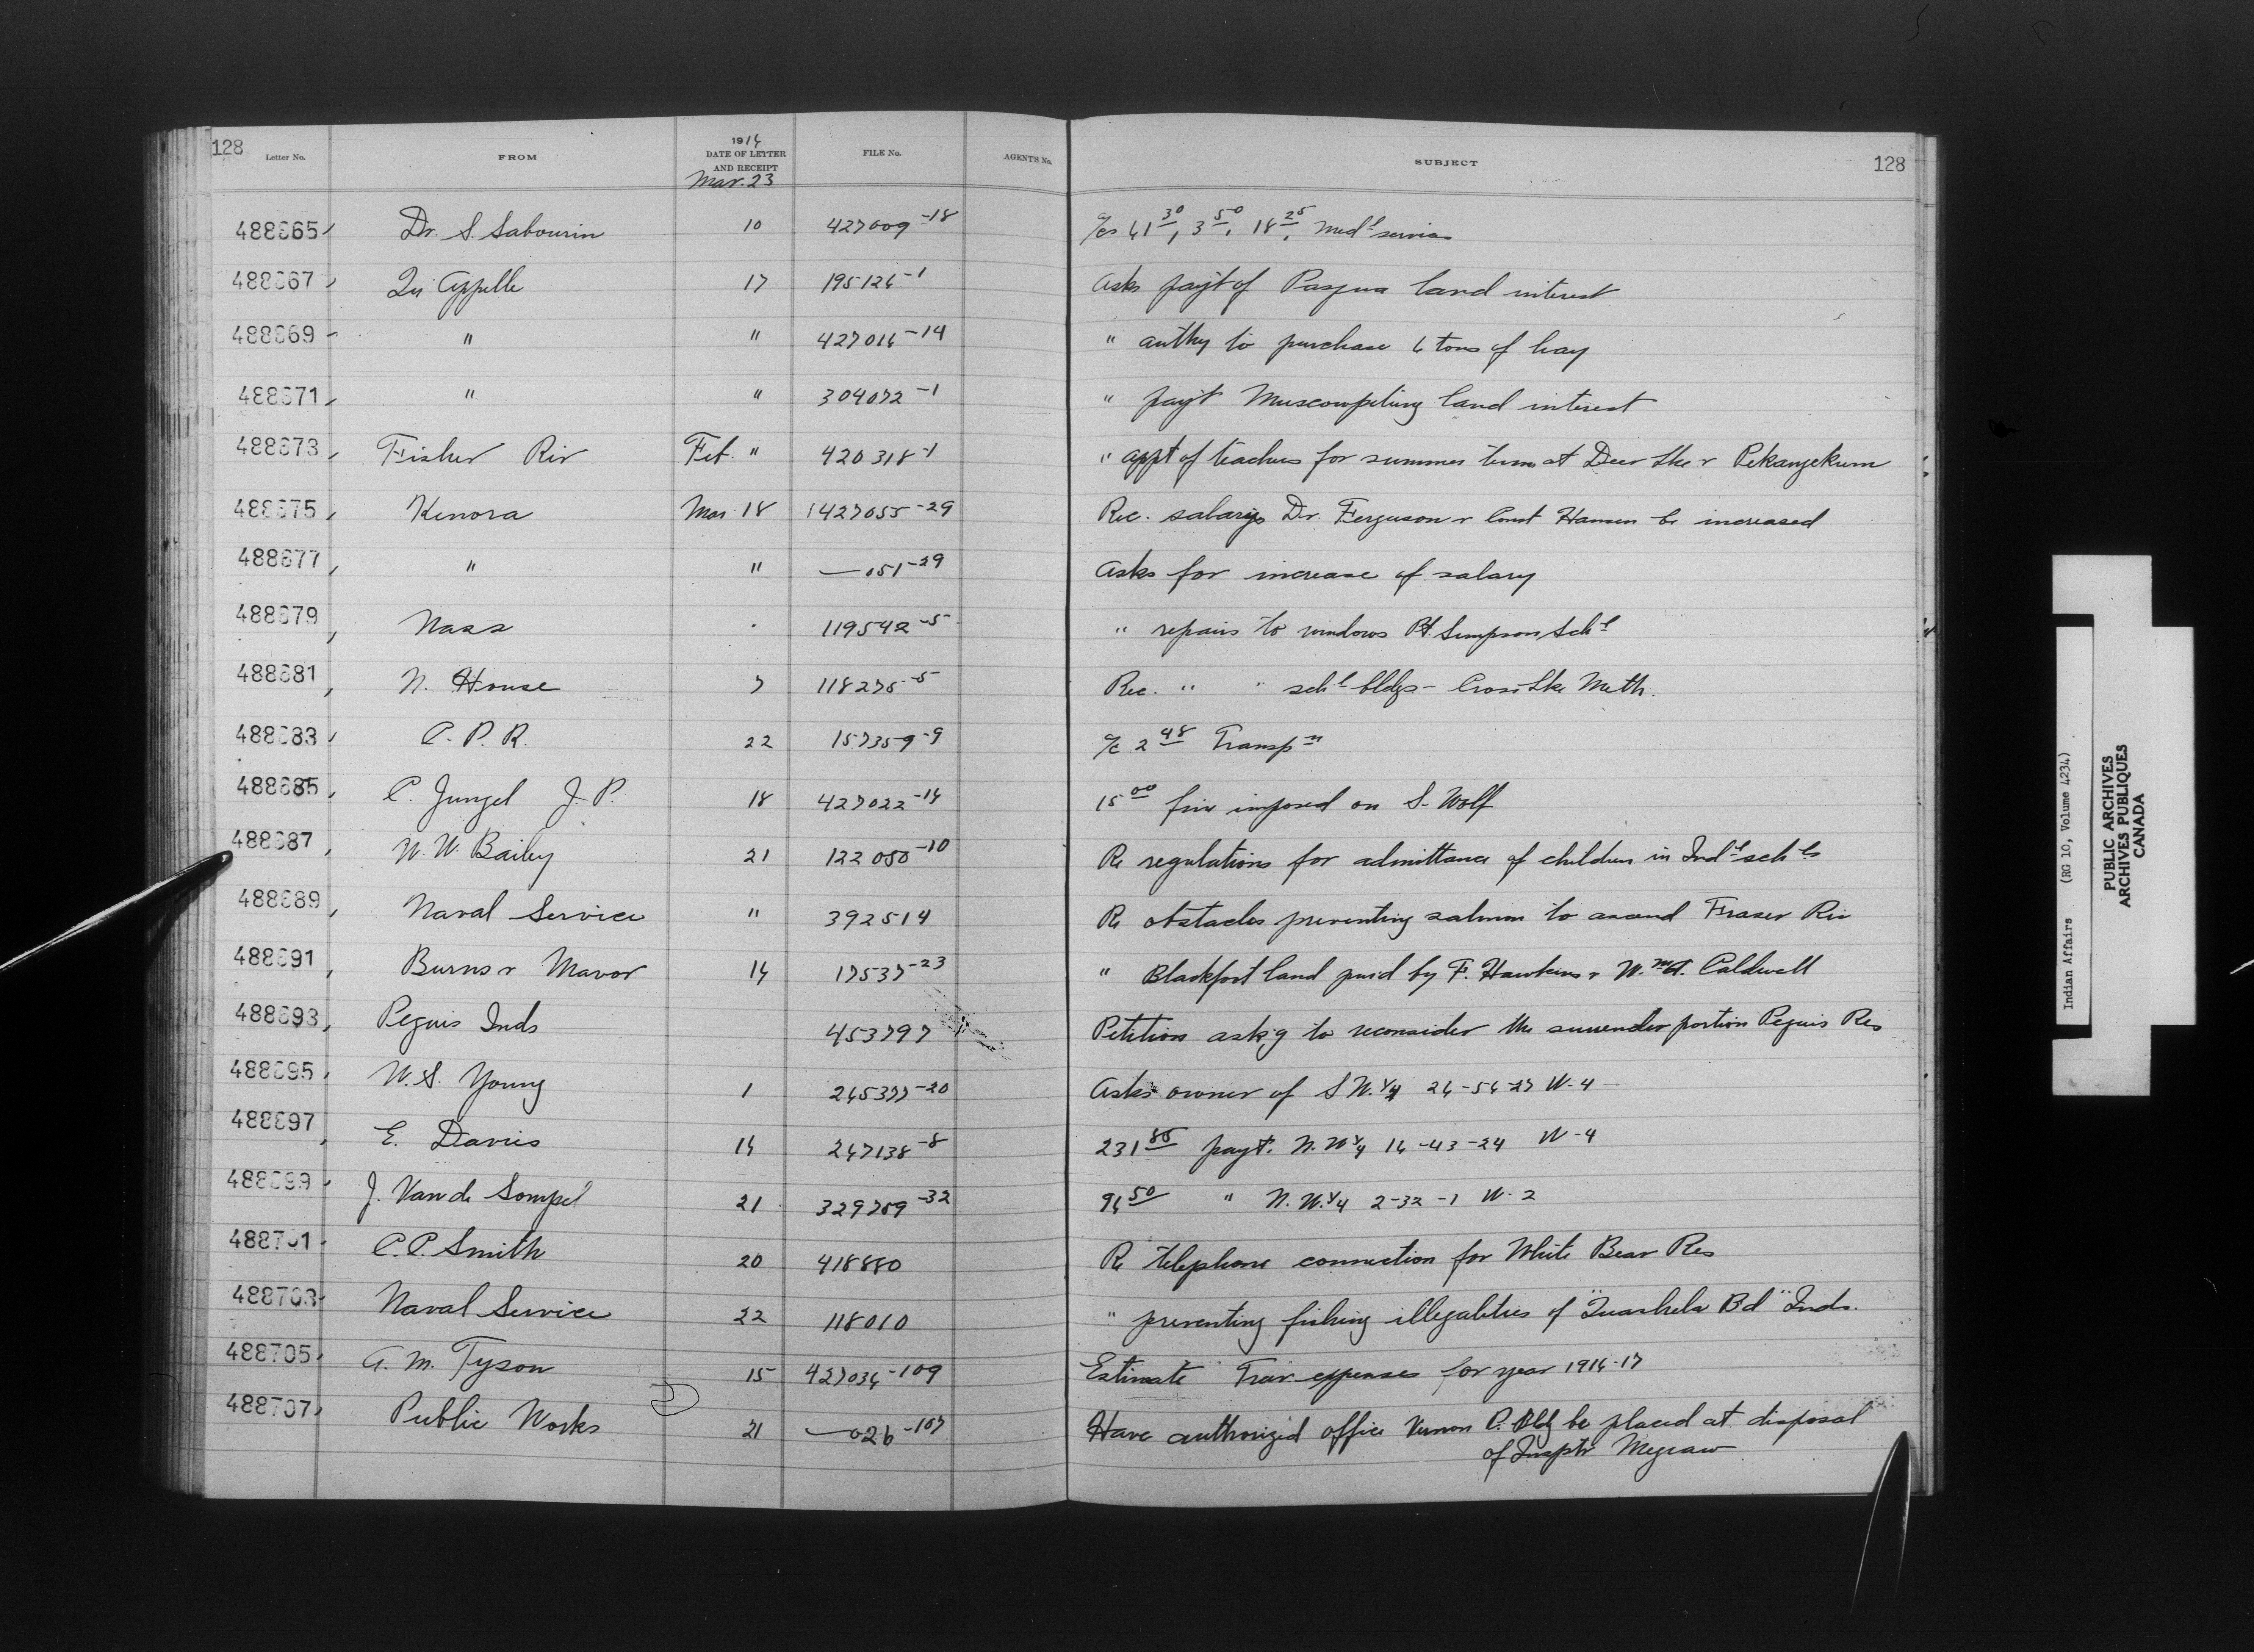 128 Letter No. FROM 1916 DATE OF LETTER AND RECEIPT FILE No. AGENT'S No. SUBJECT 128
Mar. 23
488665 Dr. S. Sabourin 10 427009-18 a/cs 61 30, 3 50, 18 25, Medl services
488667 Qu Appelle 17 195126-1 Asks payt of Pasqua land interest
488669 " " 427016-14 " authy to purchase 6 tons of hay
488671 " " 304072-1 " payt Muscowpetung land interest
488673 Fisher Riv Feb. " 420318-1 " appt of teachers for summer term at Deer Lke & Pekangekum
488675 Kenora Mar 18 427055-29 Rec. salarys Dr. Ferguson & Const Hansen be increased
488677 " " —051-29 Asks for increase of salary
488679 Nass 119542-5 " repairs to windows Pt. Simpson Schl
488681 N. House 7 118275-5 Rec. " " schl bldgs - Cross Lke Meth.
488683 C. P. R. 22 157359-9 a/c 2 48 Transpn
488685 C. Jungel J. P. 18 427022-14 15 00 fine imposed on S. Wolf
488687 W. W. Bailey 21 122050-10 Re regulations for admittance of children in Indl schls
488689 Naval Service " 392514 Re obstacles preventing salmon to ascend Fraser Riv
488691 Burns & Mavor 16 17537-23 " Blackfoot land purd by F. Hawkins & Wm A. Caldwell
488693 Peguis Inds 453797 Petition askg to reconsider the surrender portion Peguis Res
488695 W. S. Young 1 265377-20 Asks owner of S W. 1/4 26-56-27 W-4
488697 E. Davies 16 267138-8 231 85 payt. N. W 1/4 16-43-24 W-4
488699 J. Van de Sompel 21 329709-32 96 50 " N. W. 1/4 2-32-1 W. 2
488701 C. P. Smith 20 418880 Re telephone connection for White Bear Res
488703 Naval Service 22 118010 " preventing fishing illegalities of "Quashela Bd" Inds.
488705 A. M. Tyson 15 427036-109 Estimate Trav. expenses for year 1916-17
488707 Public Works 21 —026-107 Have authorized office Vernon P. Bldg be placed at disposal
of Insptr Megraw
Indian Affairs (RG 10, Volume 4234)
PUBLIC ARCHIVES
ARCHIVES PUBLIQUES
CANADA